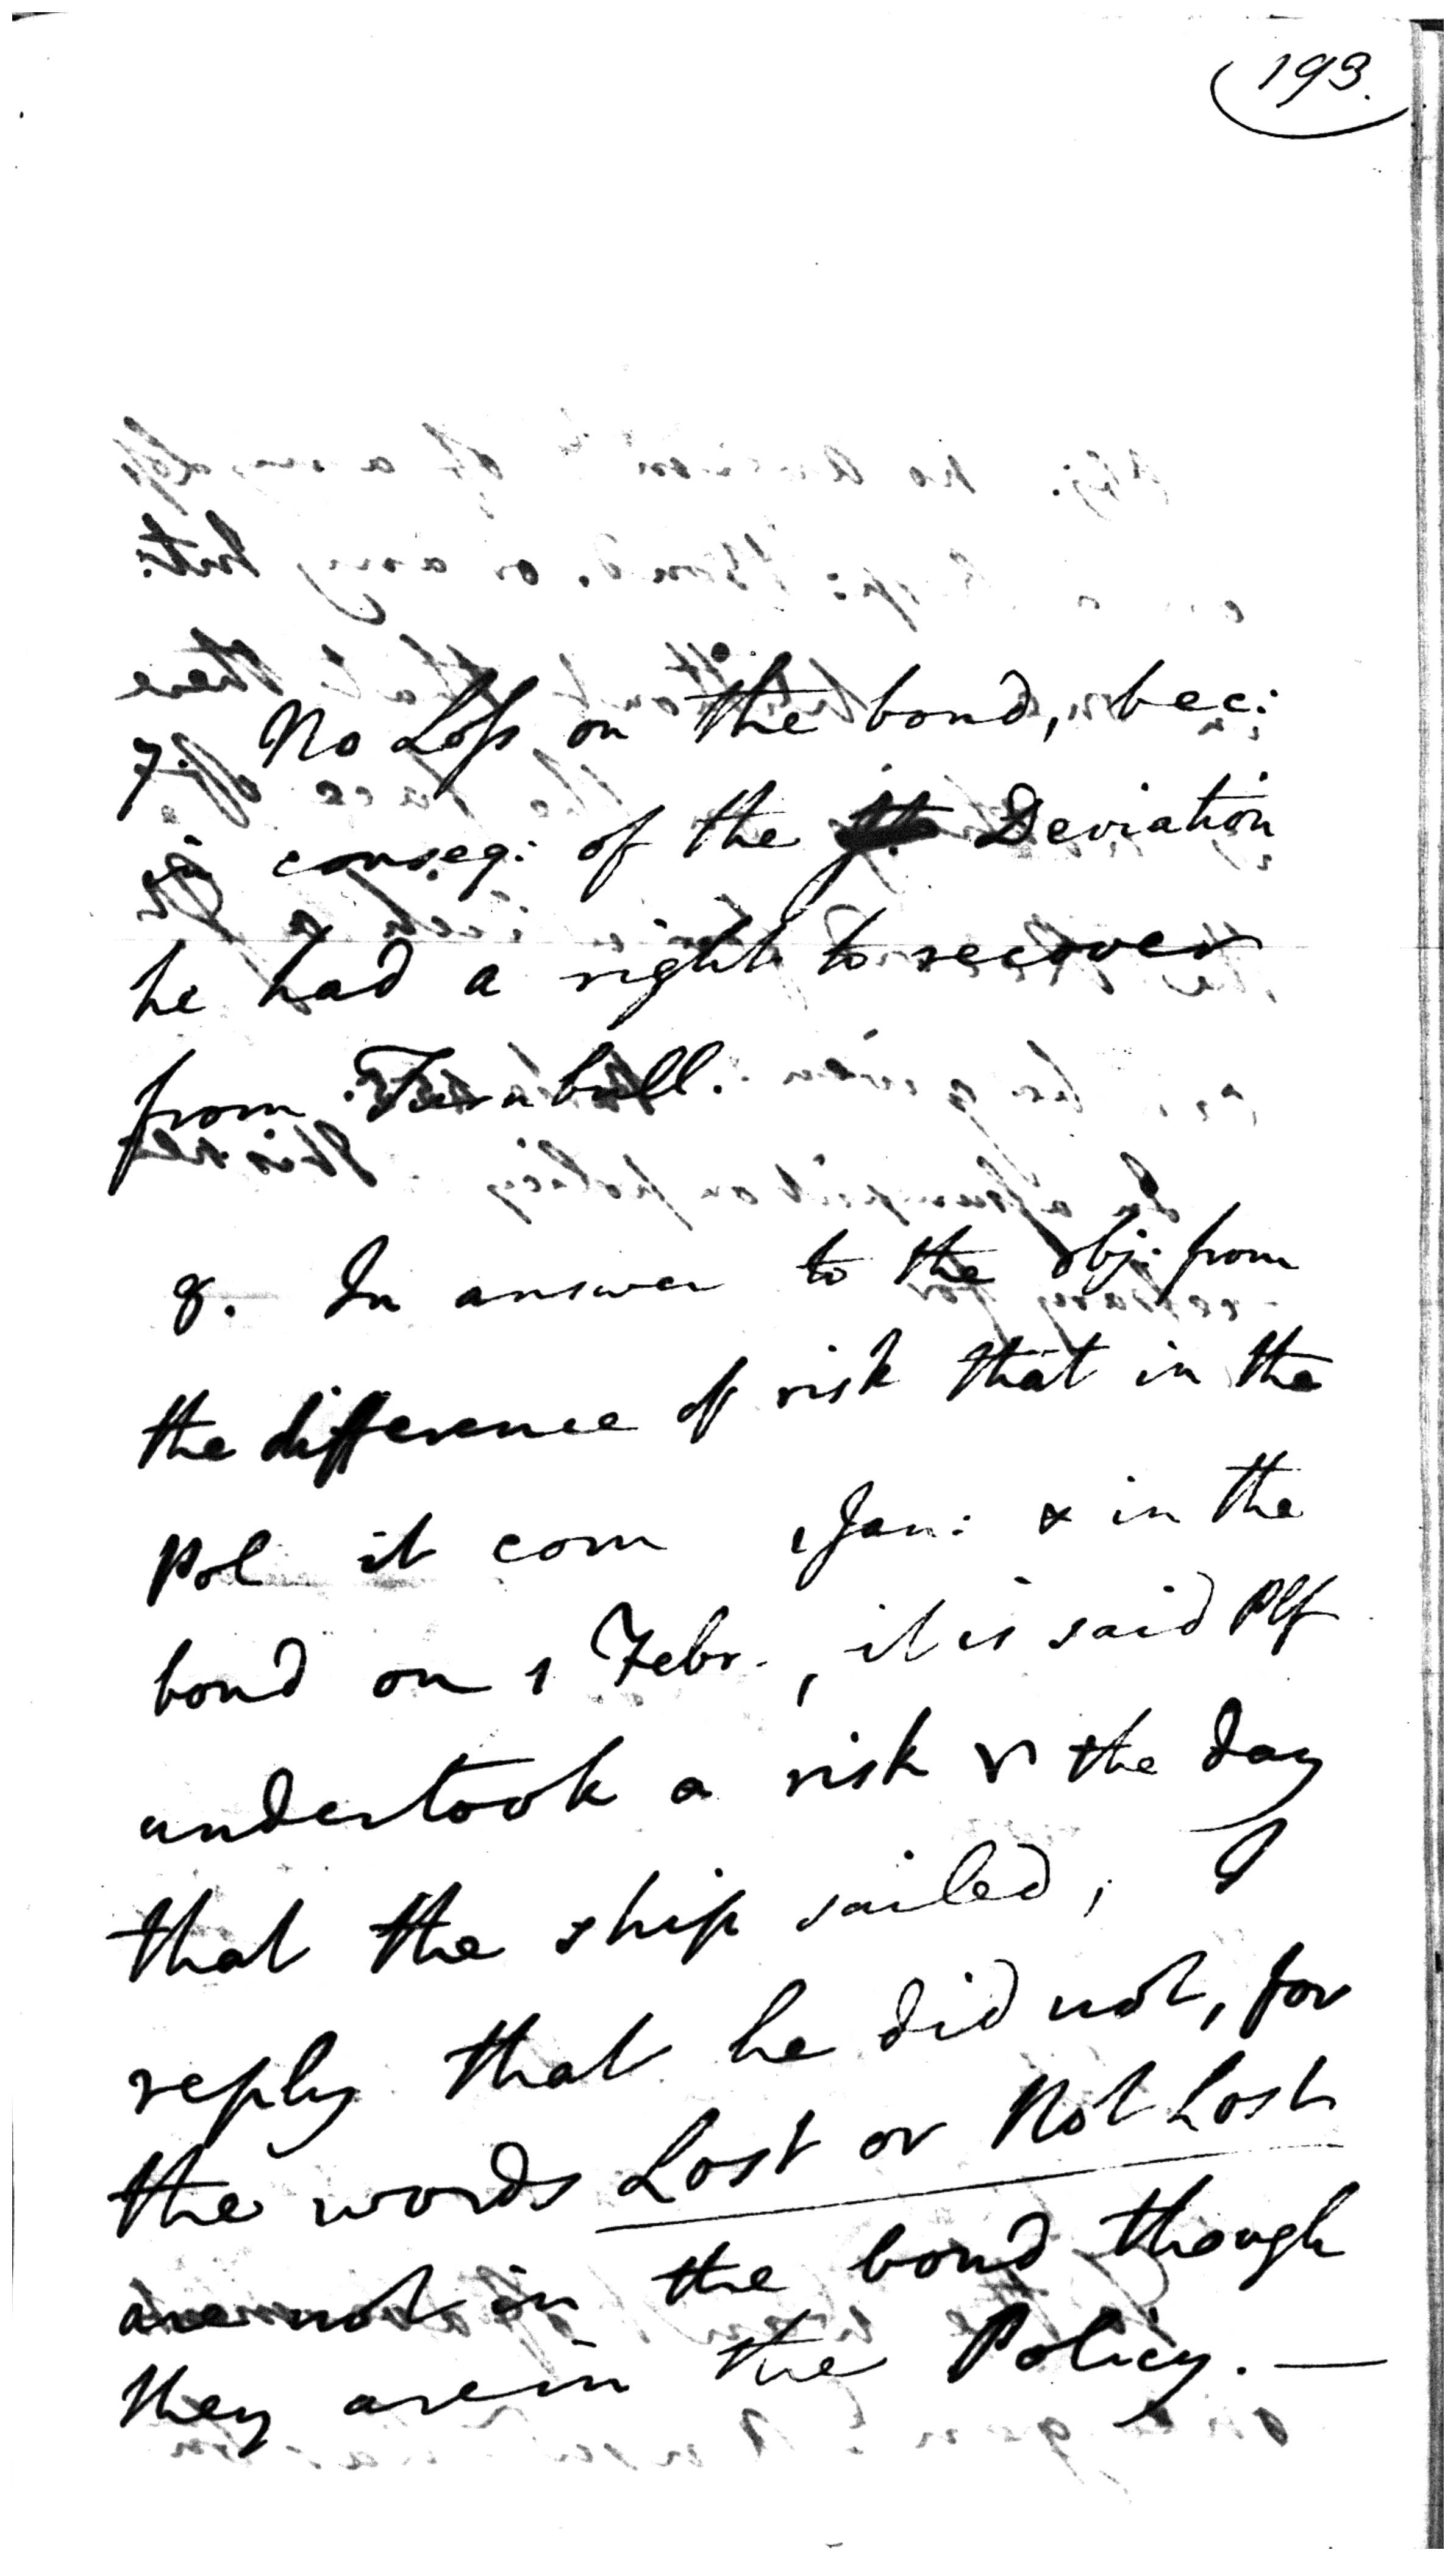 193.
7. No Loss on the bond, bec:
in conseq: of the Deviation
he had a right to recover
from Turnbull.
8. In answer to the obj: from
the difference of risk that in the
Pol it com 1 Jan: & in the
bond on 1 Febr., it is said Plf
undertook a risk the day
that the ship sailed, I
reply that he did not, for
the words Lost or Not Lost
are not in the bond though
they are in the Policy. —